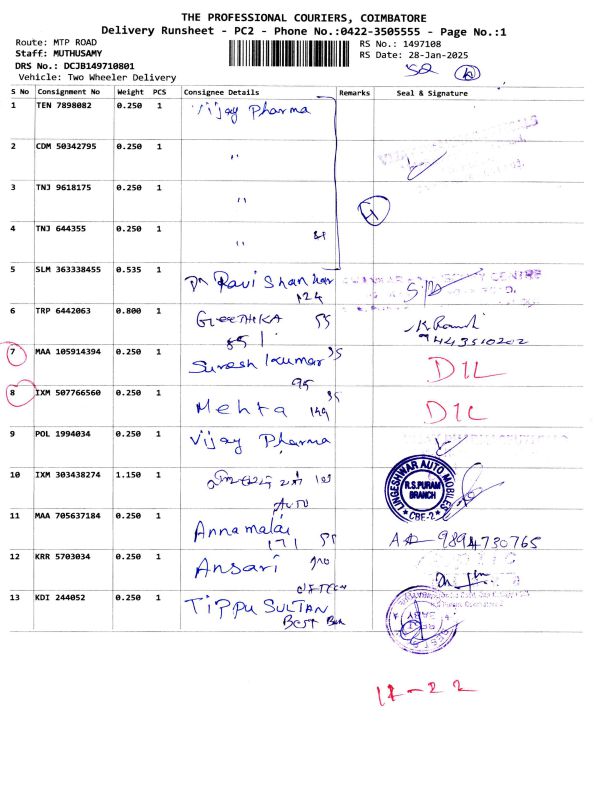 THE PROFESSIONAL COURIERS, COIMBATORE
Delivery Runsheet - PC2 - Phone No.:0422-3505555 - Page No.:1
Route: MTP ROAD
RS No.: 1497108
Staff: MUTHUSAMY
RS Date: 28-Jan-2025
DRS No.: DCJB149710801
Vehicle: Two Wheeler Delivery
S No Consignment No Weight PCS Consignee Details Remarks Seal & Signature
1 TEN 7898082 0.250 1 Vijay Pharma
2 CDM 50342795 0.250 1 "
3 TNJ 9618175 0.250 1 "
4 TNJ 644355 0.250 1 "
5 SLM 363338455 0.535 1 Dr Ravi Shankar
124
6 TRP 6442063 0.800 1 GEETHIKA
9443510202
7 MAA 105914394 0.250 1 Suresh Kumar D1L
8 IXM 507766560 0.250 1 Mehta 149 D1L
9 POL 1994034 0.250 1 Vijay Pharma
10 IXM 303438274 1.150 1
Auto
LINGESHWAR AUTO MOBILES
R.S.PURAM
BRANCH
CBE-2
11 MAA 705637184 0.250 1 Annamalai 9894730765
171
12 KRR 5703034 0.250 1 Ansari
13 KDI 244052 0.250 1 TIPPU SULTAN
BEST
22